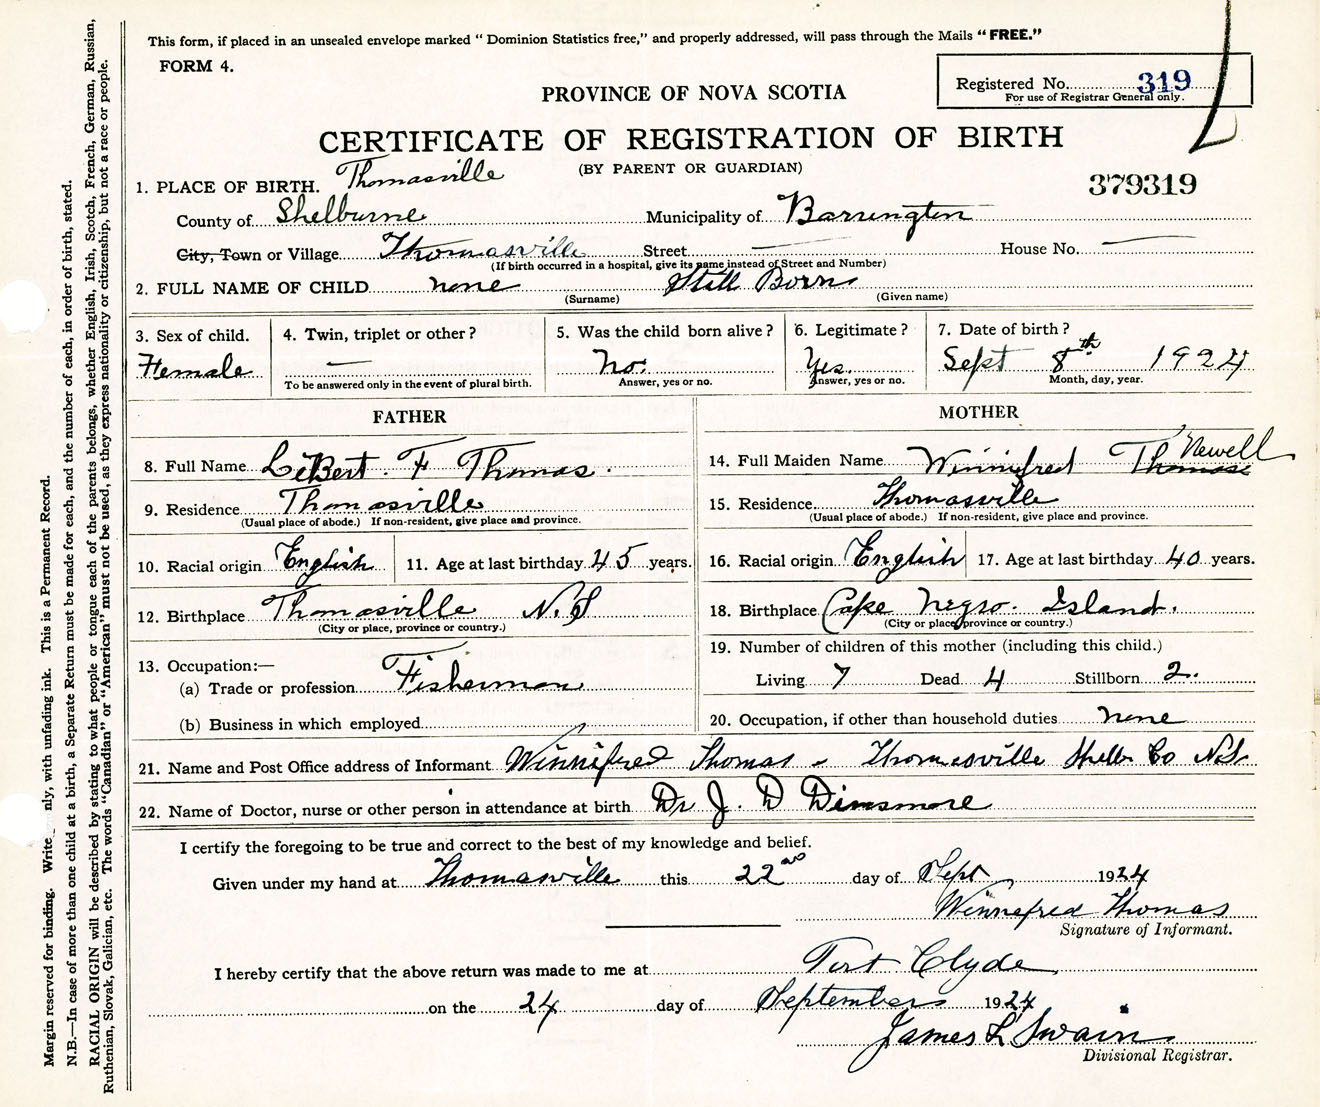 This form, if placed in an unsealed envelope marked " Dominion Statistics free," and properly addressed, will pass through the Mails "FREE."
FORM 4.
Registered No. 319
For use of Registrar General only.
PROVINCE OF NOVA SCOTIA
CERTIFICATE OF REGISTRATION OF BIRTH
(BY PARENT OR GUARDIAN)
379319
1. PLACE OF BIRTH. Thomasville
County of Shelburne Municipality of Barrington
City, Town or Village Thomasville Street — House No. —
(If birth occurred in a hospital, give its name instead of Street and Number)
2. FULL NAME OF CHILD none Still Born
(Surname) (Given name)
3. Sex of child. Female
4. Twin, triplet or other? —
To be answered only in the event of plural birth.
5. Was the child born alive? No.
Answer, yes or no.
6. Legitimate? Yes.
Answer, yes or no.
7. Date of birth? Sept 8th 1924
Month, day, year.
FATHER
8. Full Name LeBert. F Thomas.
9. Residence Thomasville
(Usual place of abode.) If non-resident, give place and province.
10. Racial origin English 11. Age at last birthday 45 years.
12. Birthplace Thomasville N.S
(City or place, province or country.)
13. Occupation:—
(a) Trade or profession Fisherman
(b) Business in which employed
MOTHER
14. Full Maiden Name Winnifred Thomas Newell
15. Residence Thomasville
(Usual place of abode.) If non-resident, give place and province.
16. Racial origin English 17. Age at last birthday 40 years.
18. Birthplace Cape Negro. Island.
(City or place, province or country.)
19. Number of children of this mother (including this child.)
Living 7 Dead 4 Stillborn 2.
20. Occupation, if other than household duties none
21. Name and Post Office address of Informant Winnifred Thomas - Thomasville Shelb Co N.S.
22. Name of Doctor, nurse or other person in attendance at birth Dr J. D Dinsmore
I certify the foregoing to be true and correct to the best of my knowledge and belief.
Given under my hand at Thomasville this 22nd day of Sept 1924
Winnefred Thomas
Signature of Informant.
I hereby certify that the above return was made to me at Port Clyde
on the 24 day of September 1924
James L Swain
Divisional Registrar.
Margin reserved for binding. Write nly, with unfading ink. This is a Permanent Record.
N.B.—In case of more than one child at a birth, a Separate Return must be made for each, and the number of each, in order of birth, stated.
RACIAL ORIGIN will be described by stating to what people or tongue each of the parents belongs, whether English, Irish, Scotch, French, German, Russian,
Ruthenian, Slovak, Galician, etc. The words "Canadian" or "American" must not be used, as they express nationality or citizenship, but not a race or people.